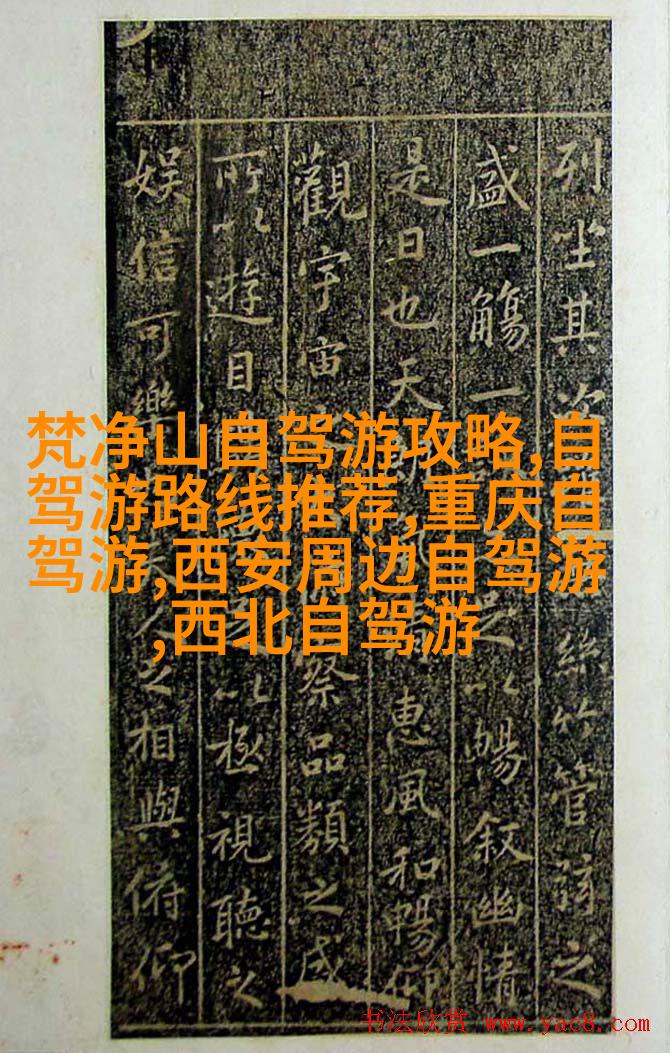 梵净山自驾游攻略,自
驾游路线推荐,重庆自
驾游,西安周边自驾游
,西北自驾游
列坐其次絲竹管弦之
盛一觴一足以暢叙幽情
是日也天惠風和暢仰
觀宇宙察品類之盛
所以遊目以極視聽之
娱信可樂人之相與俯仰
书法欣赏 www.yac8.com